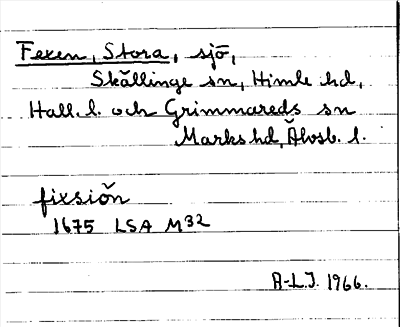 Fexen, Stora, sjö,
Skällinge sn, Himle hd,
Hall. l. och Grimmareds sn
Marks hd, Älvsb. l.
fixsiön
1675 LSA M32
A-L.J. 1966.